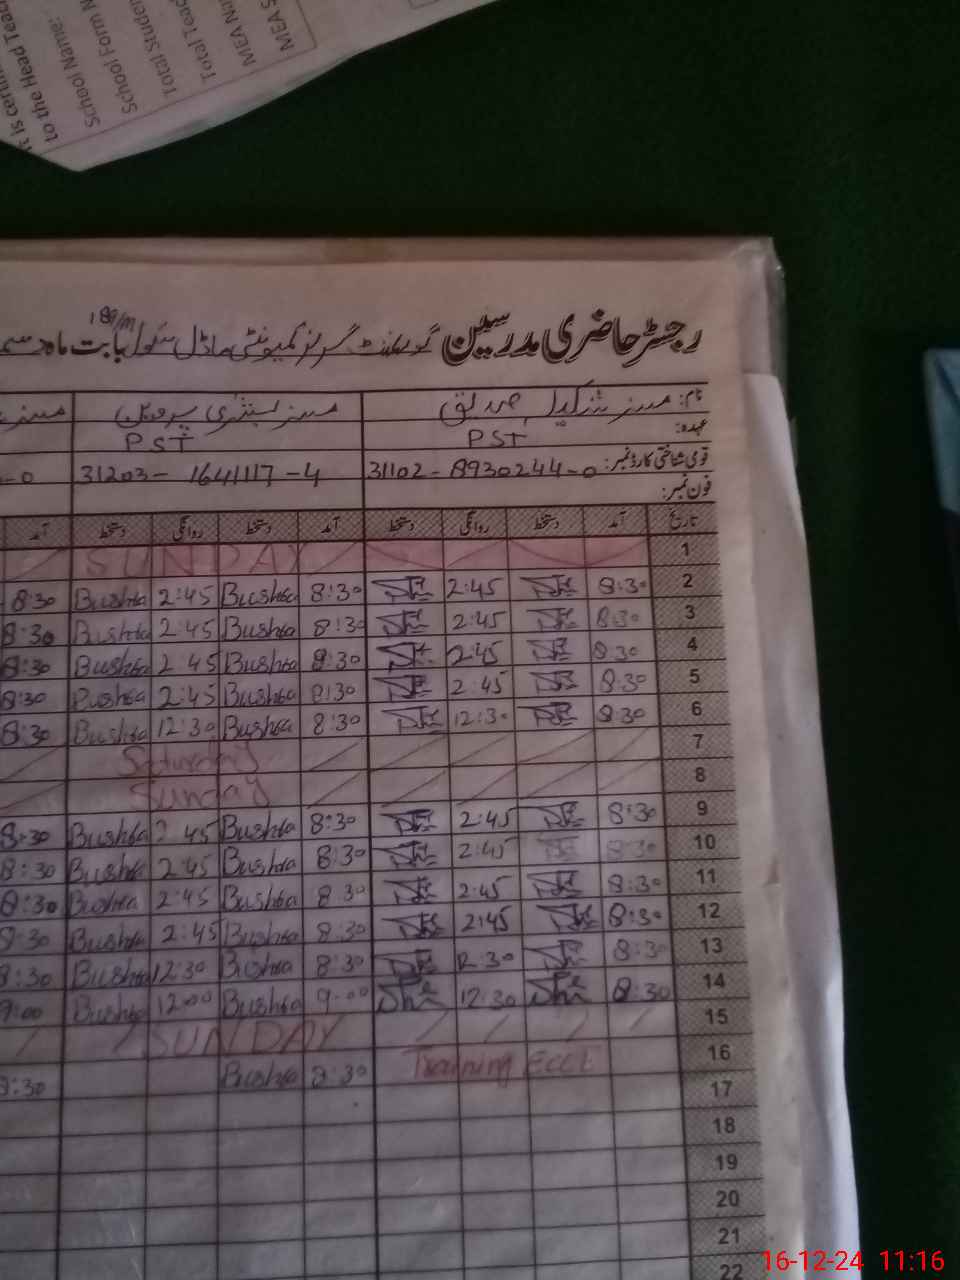 It is certi
to the Head Tea
School Name:
School Form N
Total Studen
Total Teac
MEA Na
MEA S
رجسٹر حاضری مدرسین گورنمنٹ گرلز کمیونٹی ماڈل سکول 189/M بابت ماہ دسم
نام: مسز شکیلہ صدیق مسز بشریٰ پروین مسز
عہدہ: PST PST
قومی شناختی کارڈ نمبر: 31102-8930244-0 31203-1641117-4 -0
فون نمبر:
تاریخ آمد دستخط روانگی دستخط آمد دستخط روانگی دستخط آمد
1 SUNDAY
2 8:30 2:45 8:30 Bushra 2:45 Bushra 8:30
3 8:30 2:45 8:30 Bushra 2:45 Bushra 8:30
4 8:30 2:45 8:30 Bushra 2:45 Bushra 8:30
5 8:30 2:45 8:30 Bushra 2:45 Bushra 8:30
6 8:30 12:30 8:30 Bushra 12:30 Bushra 8:30
7 Saturday
8 Sunday
9 8:30 2:45 8:30 Bushra 2:45 Bushra 8:30
10 8:30 2:45 8:30 Bushra 2:45 Bushra 8:30
11 8:30 2:45 8:30 Bushra 2:45 Bushra 8:30
12 8:30 2:45 8:30 Bushra 2:45 Bushra 8:30
13 8:30 12:30 8:30 Bushra 12:30 Bushra 8:30
14 8:30 12:30 9:00 Bushra 12:00 Bushra 9:00
15 SUNDAY
16 Training ECCE 8:30 Bushra 8:30
17
18
19
20
21
22
16-12-24 11:16